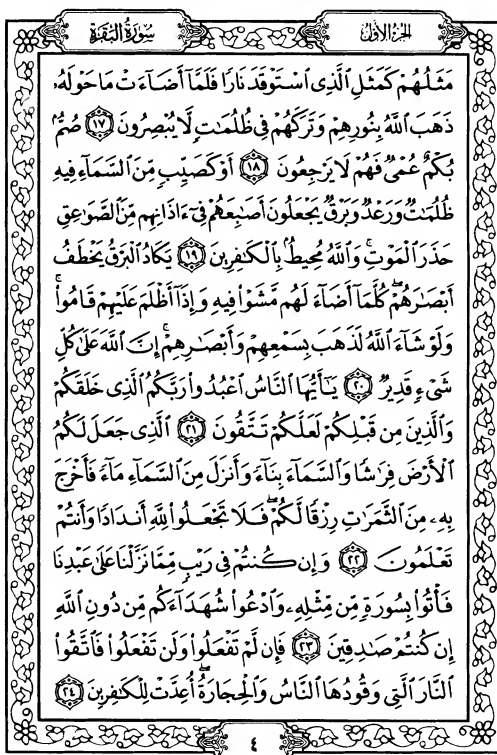 سُورَةُ البَقَرَةِ
الجُزءُ الأَوَّلُ
مَثَلُهُمْ كَمَثَلِ ٱلَّذِى ٱسْتَوْقَدَ نَارًا فَلَمَّآ أَضَآءَتْ مَا حَوْلَهُۥ
ذَهَبَ ٱللَّهُ بِنُورِهِمْ وَتَرَكَهُمْ فِى ظُلُمَٰتٍ لَّا يُبْصِرُونَ ١٧ صُمٌّۢ
بُكْمٌ عُمْىٌ فَهُمْ لَا يَرْجِعُونَ ١٨ أَوْ كَصَيِّبٍ مِّنَ ٱلسَّمَآءِ فِيهِ
ظُلُمَٰتٌ وَرَعْدٌ وَبَرْقٌ يَجْعَلُونَ أَصَٰبِعَهُمْ فِىٓ ءَاذَانِهِم مِّنَ ٱلصَّوَٰعِقِ
حَذَرَ ٱلْمَوْتِ ۚ وَٱللَّهُ مُحِيطٌۢ بِٱلْكَٰفِرِينَ ١٩ يَكَادُ ٱلْبَرْقُ يَخْطَفُ
أَبْصَٰرَهُمْ ۖ كُلَّمَآ أَضَآءَ لَهُم مَّشَوْا۟ فِيهِ وَإِذَآ أَظْلَمَ عَلَيْهِمْ قَامُوا۟ ۚ
وَلَوْ شَآءَ ٱللَّهُ لَذَهَبَ بِسَمْعِهِمْ وَأَبْصَٰرِهِمْ ۚ إِنَّ ٱللَّهَ عَلَىٰ كُلِّ
شَىْءٍ قَدِيرٌ ٢٠ يَٰٓأَيُّهَا ٱلنَّاسُ ٱعْبُدُوا۟ رَبَّكُمُ ٱلَّذِى خَلَقَكُمْ
وَٱلَّذِينَ مِن قَبْلِكُمْ لَعَلَّكُمْ تَتَّقُونَ ٢١ ٱلَّذِى جَعَلَ لَكُمُ
ٱلْأَرْضَ فِرَٰشًا وَٱلسَّمَآءَ بِنَآءً وَأَنزَلَ مِنَ ٱلسَّمَآءِ مَآءً فَأَخْرَجَ
بِهِۦ مِنَ ٱلثَّمَرَٰتِ رِزْقًا لَّكُمْ ۖ فَلَا تَجْعَلُوا۟ لِلَّهِ أَندَادًا وَأَنتُمْ
تَعْلَمُونَ ٢٢ وَإِن كُنتُمْ فِى رَيْبٍ مِّمَّا نَزَّلْنَا عَلَىٰ عَبْدِنَا
فَأْتُوا۟ بِسُورَةٍ مِّن مِّثْلِهِۦ وَٱدْعُوا۟ شُهَدَآءَكُم مِّن دُونِ ٱللَّهِ
إِن كُنتُمْ صَٰدِقِينَ ٢٣ فَإِن لَّمْ تَفْعَلُوا۟ وَلَن تَفْعَلُوا۟ فَٱتَّقُوا۟
ٱلنَّارَ ٱلَّتِى وَقُودُهَا ٱلنَّاسُ وَٱلْحِجَارَةُ ۖ أُعِدَّتْ لِلْكَٰفِرِينَ ٢٤
٤